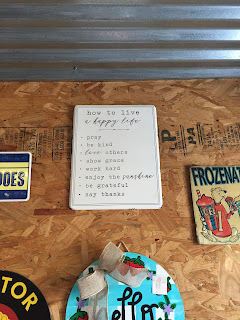 how to live
a happy life
• pray
• be kind
• love others
• show grace
• work hard
• enjoy the sunshine
• be grateful
• say thanks
DOES
FROZENAT